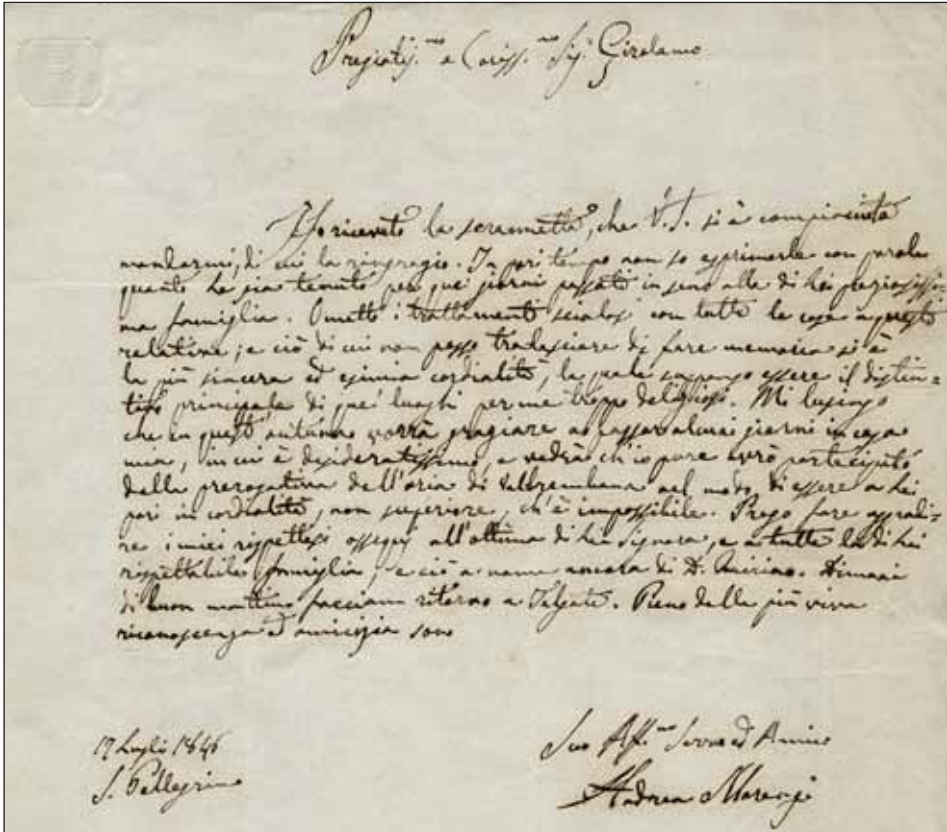 Pregiatis.mo e Cariss.mo Sig. Girolamo
Ho ricevuto la scrannetta, che V.S. si è compiaciuta
mandarmi, di cui la ringrazio. In pari tempo non so esprimerle con parole
quanto le sia tenuto per que' giorni passati in seno alla di Lei preziosissi=
ma famiglia. Ometto i trattamenti con tutte le cose a questo
relative; e ciò di cui non posso tralasciare di fare memoria si è
la più sincera ed esimia cordialità, la quale suppongo essere il distin=
tivo principale di que' luoghi per me troppo deliziosi. Mi lusingo
che in quest'autunno vorrà graziare a passar alcuni giorni in casa
mia, in cui è desideratissimo, e vedrà ch'io pure avrò partecipato
della prerogativa dell'aria di Valbrembana nel modo di essere a Lei
pari in cordialità, non superiore, ch'è impossibile. Prego fare aggradi=
re i miei rispettosi ossequj all'ottima di Lei Signora, e a tutta la di Lei
rispettabile famiglia, e ciò a nome ancora di D. Dimani
di buon mattino facciam ritorno a Telgate. Pieno della più viva
riconoscenza ed amicizia sono
17 Luglio 1846
S. Pellegrino
Suo Aff.mo Servo ed Amico
Andrea Marenzi